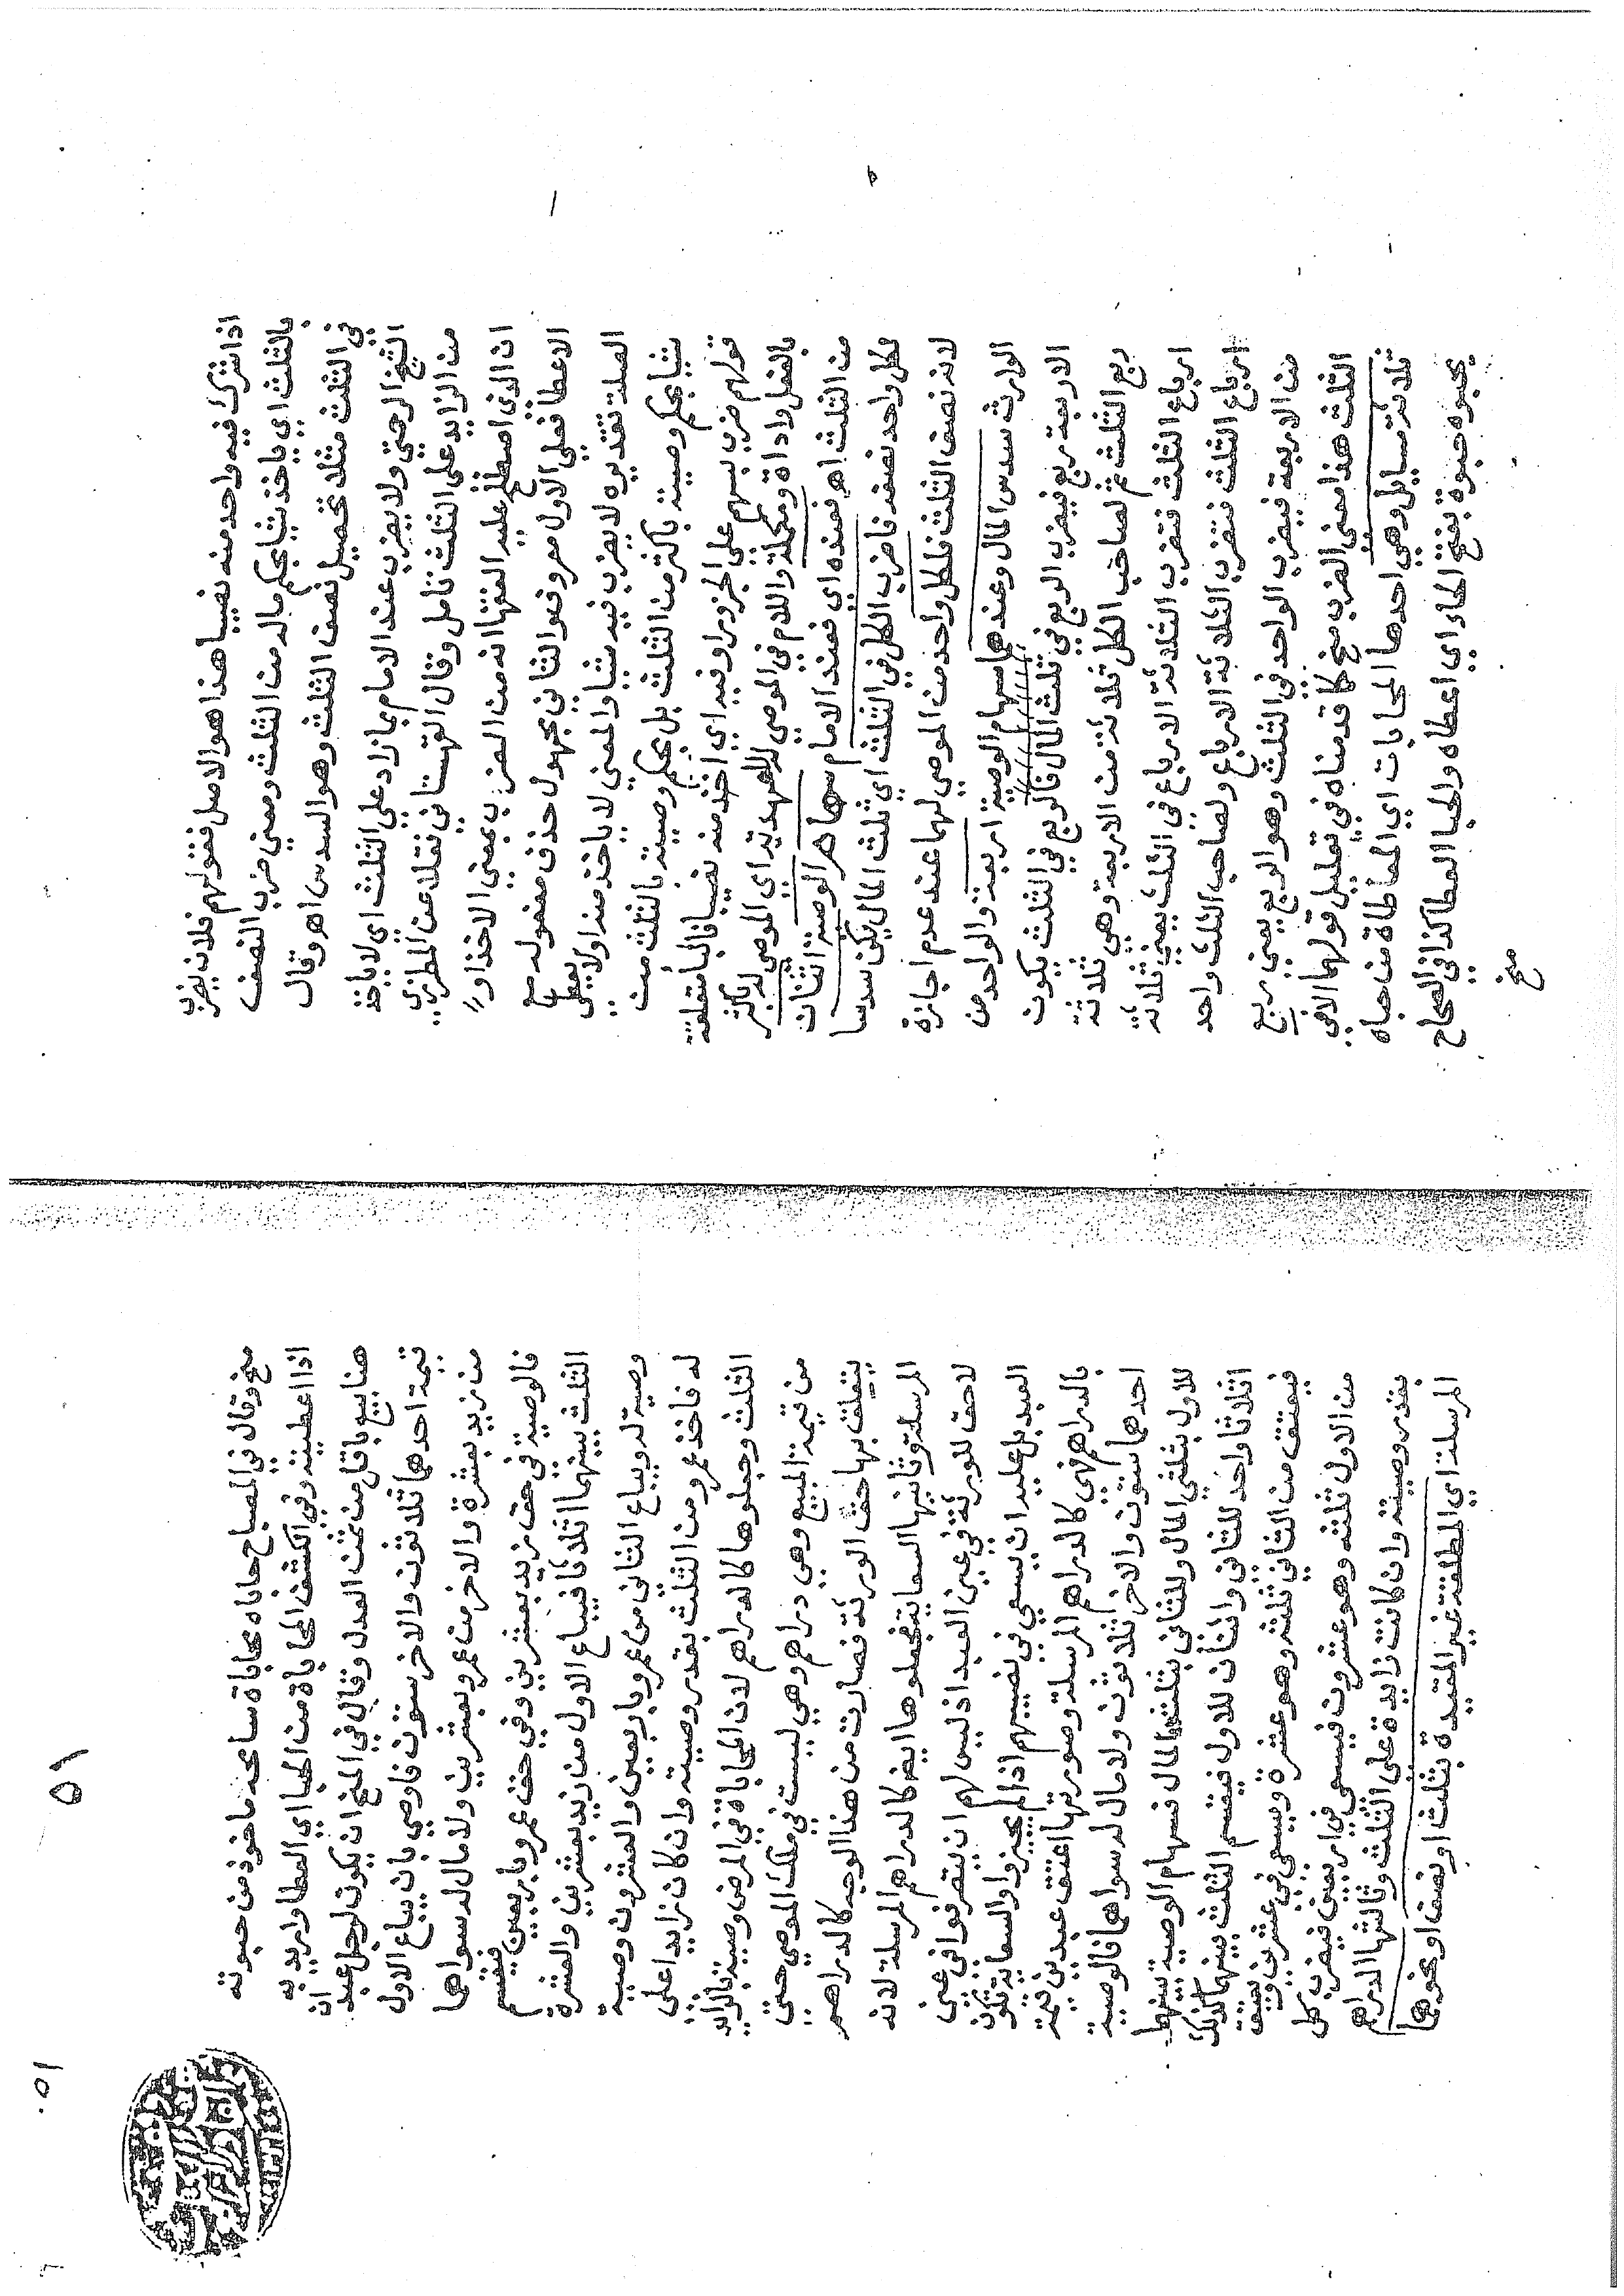 اذا شرك فيه واحد منه نصيبا هذا هو الاصل فقولهم فلان يضرب
بالثلث اي ياخذ شيا بحكم ماله من الثلث ومعني ضرب النصف
في الثلث مثلا تحصيل نصف الثلث وهو السدس اهـ وقال
الشيخ الرحمتي ولا يضرب عند الامام بما زاد علي الثلث اي لا ياخذ
من الزايد علي الثلث تامل وقال القهستاني نقلا عن المطرزي
ان الذي اصطلح عليه الفقها انه من الضرب بمعني الاخذ او
الاعطا فعلي الاول معروف والثاني مجهول حذف مفعوله مع
الصلة تقديره لا يضرب فيه شيا والمعني لا ياخذ منه او لا يعطي
شيا بحكم وصيته باكثر من الثلث بل بحكم وصيته بالثلث من
قولهم ضرب بسهم علي الجزور او فيه اي اخذ منه نصيبا فالبا متعلقة
بالفعل واداة ومكملة واللام في الموصي للعهدية اي الموصي له باكثر
من الثلث اهـ فعنده اي فعند الامام سهام الوصية اثنان
لكل واحد نصفه فاضرب الكل في الثلث اي ثلث المال يكن سدسا
لانه نصف الثلث فلكل واحد من الموصي لهما عند عدم اجازة
الوارث سدس المال وعندهما سهام الوصية اربعة والواحد من
الاربعة ربع فيضرب الربع في ثلث المال فالربع في الثلث يكون
ربع الثلث ثم لصاحب الكل ثلاثة من الاربعة وهي ثلاثة
ارباع الثلث فتضرب الثلاثة الارباع في الثلث يعني ثلاثة
ارباع الثلث فتضرب الثلاثة الارباع ولصاحب الثلث واحد
من الاربعة فيضرب الواحد في الثلث وهو الربع يعني ربع
الثلث هذا معني الضرب منح كما قدمناه في تعليل قولهما الاتي
ثلاثة مسايل وهي احدها المحابات اي المعاطاة من حباه
يحبوه حبوة بفتح الحاء اي اعطاه والحبا العطا كذا في الصحاح
منح
٥١
منح وقال في المصباح حاباه محاباة سامحه ماخوذ من حبوته
اذا اعطيته وفي الكشف المحاباة من الحبا اي العطا واريد به
هنا بيع باقل من ثمن العدل وقال في المنح ان يكون لرجل عبدان
قيمة احدهما ثلاثون والاخر ستون فاوصي بان يباع الاول
من زيد بعشرة والاخر من عمرو بعشرين ولا مال له سواهما
فالوصية في حق زيد بعشرين وفي حق عمرو باربعين فيقسم
الثلث بينهما اثلاثا فيباع الاول من زيد بعشرين والعشرة
وصية له ويباع الثاني من عمرو باربعين والعشرون وصية
له فاخذ عمرو من الثلث بقدر وصيته وان كان زايدا علي
الثلث وجعلوها كالدراهم لان المحاباة في المرض وصية بالزايد
من قيمة المبيع وهي دراهم وهي ليست في ملك الموصي حتي
يتعلق بها حق الورثة فصارت من هذا الوجه كالدراهم
المرسلة وثانيها السعاية فجعلوها ايضا كالدراهم المرسلة لانه
لاحق للورثة في عين العبد اذ ليس لهم ان يتصرفوا في عين
العبد بل عليه ان يسعي في نصيبهم اذا لم يجيزوا والسعاية تكون
بالدراهم فهي كالدراهم المرسلة وصورتها اعتق عبدين قيمة
احدهما ستون والاخر ثلاثون ولا مال له سواهما فالوصية
للاول بثلثي المال وللثاني بثلث المال فسهام الوصية بينهما
اثلاثا واحد للثاني واثنان للاول فيقسم الثلث بينهما كذلك
فيعتق من الثاني ثلثه وهو عشرة ويسعي في عشرين ويعتق
من الاول ثلثه وهو عشرون فيسعي في اربعين فيضرب كل
بقدر وصيته وان كانت زايدة علي الثلث وثالثها الدراهم
المرسلة اي المطلقة غير المقيدة بثلث او نصف او نحوهما
١٥٠